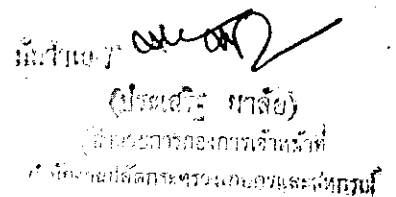 (ประเสริฐ มาลัย)
ผู้อำนวยการกองการเจ้าหน้าที่
สำนักงานปลัดกระทรวงเกษตรและสหกรณ์